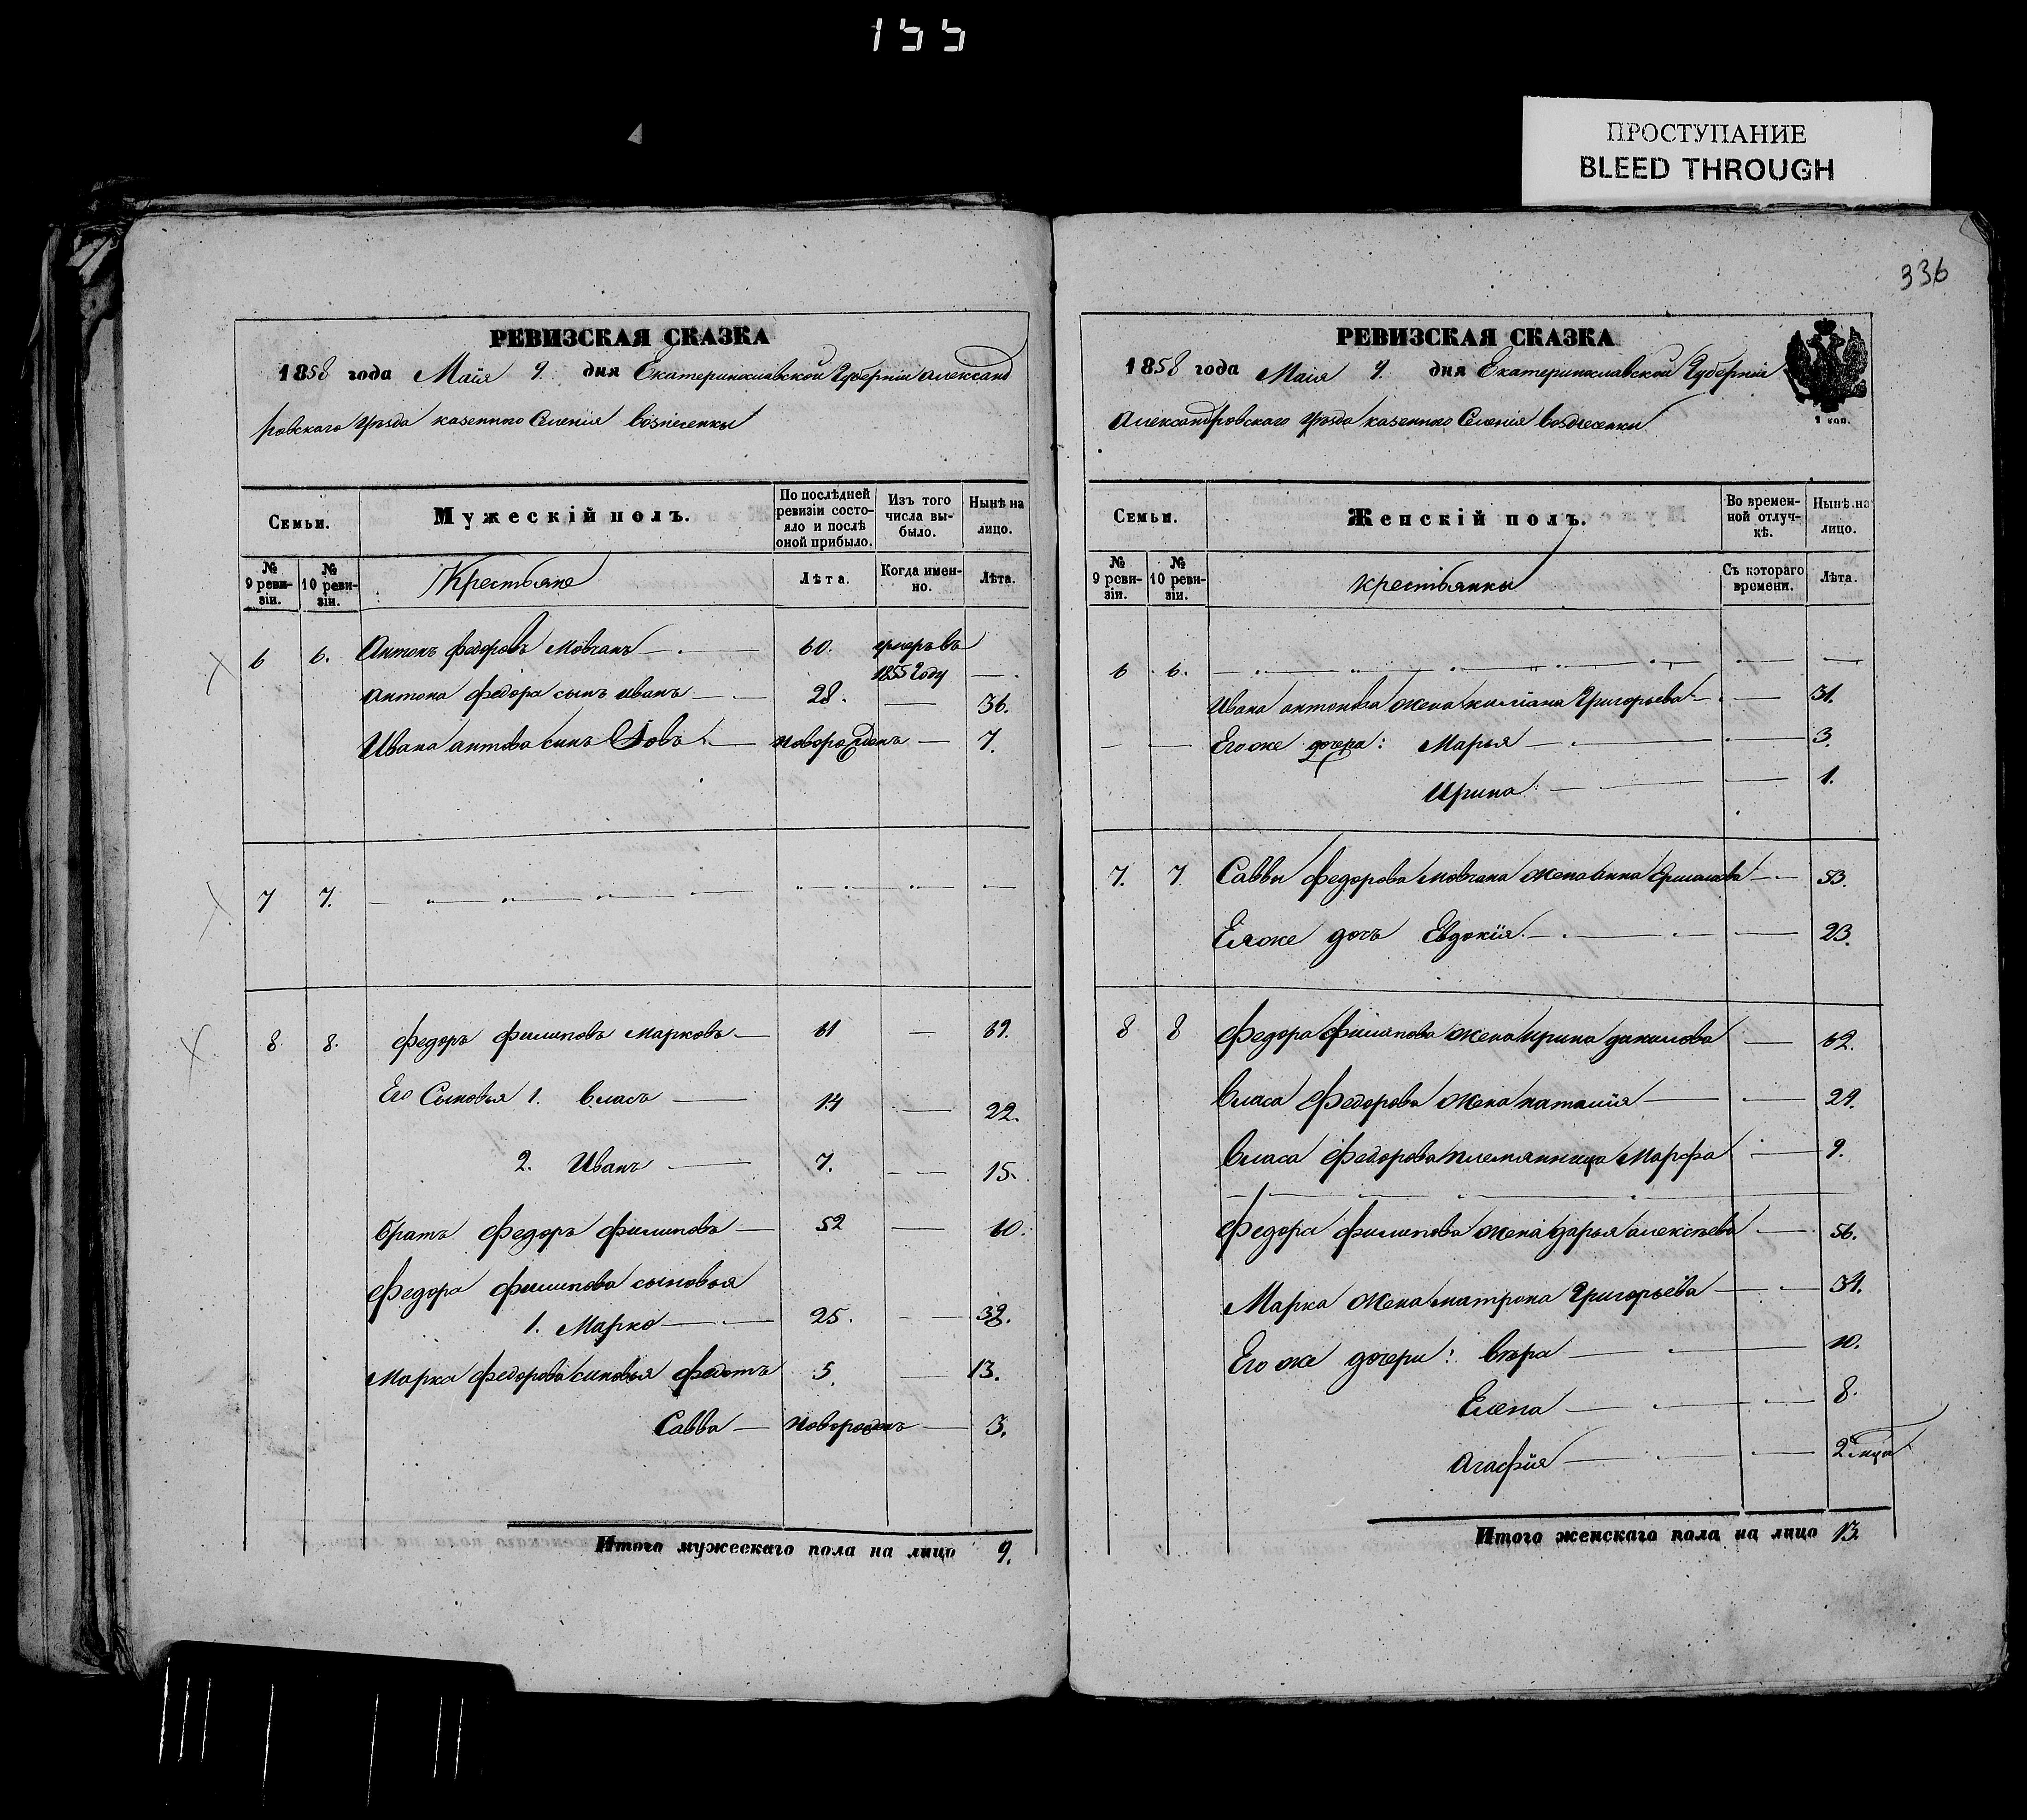 155
ПРОСТУПАНИЕ
BLEED THROUGH
336
РЕВИЗСКАЯ СКАЗКА
1858 года Маія 9. дня Екатеринославской Губерніи Александ
ровскаго Уѣзда казеннаго Селенія Вознесенки
Семьи.
Мужескій полъ.
По послѣдней ревизіи состояло и послѣ оной прибыло.
Изъ того числа выбыло.
Нынѣ на лицо.
№ 9 ревизіи.
№ 10 ревизіи.
Крестьяне
Лѣта.
Когда именно.
Лѣта.
6 6. Антонъ Федоровъ Мовчанъ — 60. умеръ въ 1855 Году —
Антона Федора сынъ Иванъ — 28. — 36.
Ивана Антова синъ — новорожденъ — 7.
7 7. — „ — „ — „ — „ — „ —
8. 8. Федоръ Филиповъ Марковъ — 61 — 69.
Его Сыновья 1. Власъ — 14 — 22.
2. Иванъ — 7. — 15.
братъ Федоръ Филиповъ — 52 — 60.
Федора Филипова сыновья
1. Марко — 25. — 32.
Марка Федорова синовья Федотъ 5. — 13.
Савва — новорожденъ — 3.
Итого мужескаго пола на лицо 9.
РЕВИЗСКАЯ СКАЗКА
1858 года Маія 9. дня Екатеринославской Губерніи
Александровскаго Уѣзда казеннаго Селенія Вознесенки
1 коп.
Семьи.
Женскій полъ.
Во временной отлучкѣ.
Нынѣ на лицо.
№ 9 ревизіи.
№ 10 ревизіи.
Крестьянки
Съ котораго времени.
Лѣта.
6 6. — „ — „ — „ — „ — „ —
Ивана Антонова жена Григорьева — 31.
Его же дочери: Марья — 3.
Ирина — 1.
7. 7 Саввы Федорова Мовчана жена Анна — 53.
Ея же дочъ Евдокія — 23.
8 8 Федора Филипова жена Ирина Данилова — 62.
Власа Федорова жена Наталия — 29.
Власа Федорова племянница Марфа — 9.
Федора Филипова жена Дарья Алексѣева — 56.
Марка жена Матрона Григорьева — 34.
Его же дочери: Вѣра — 10.
Елена — 8.
Агафия — 2 мца
Итого женскаго пола на лицо 13.